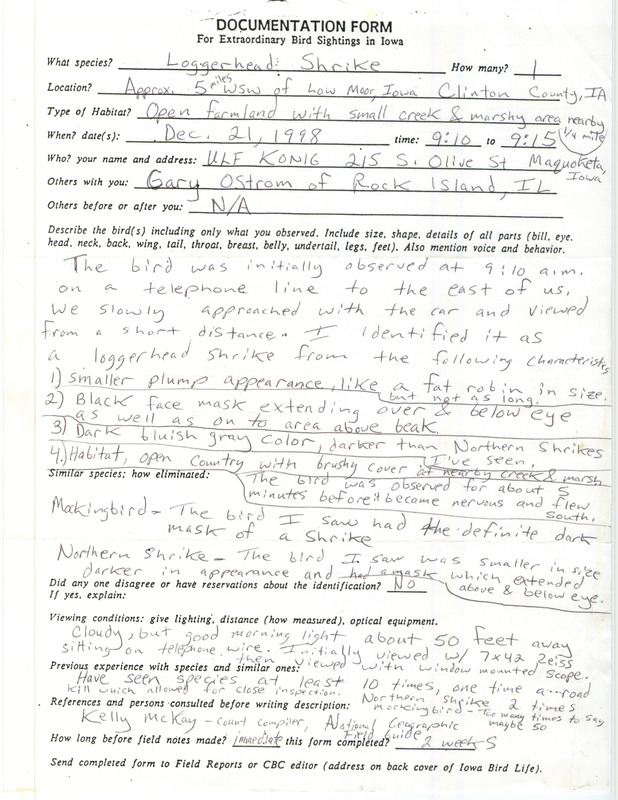 DOCUMENTATION FORM
For Extraordinary Bird Sightings in Iowa
What species? Loggerhead Shrike How many? 1
Location? Approx. 5 miles WSW of Low Moor, Iowa Clinton County, IA
Type of Habitat? Open farmland with small creek & marshy area nearby 1/4 mile
When? date(s): Dec. 21, 1998 time: 9:10 to 9:15
Who? your name and address: ULF KONIG 215 S. Olive St Maquoketa, Iowa
Others with you: Gary Ostrom of Rock Island, IL
Others before or after you: N/A
Describe the bird(s) including only what you observed. Include size, shape, details of all parts (bill, eye,
head, neck, back, wing, tail, throat, breast, belly, undertail, legs, feet). Also mention voice and behavior.
The bird was initially observed at 9:10 a.m.
on a telephone line to the east of us.
We slowly approached with the car and viewed
from a short distance. I identified it as
a loggerhead shrike from the following characteristics
1) smaller plump appearance, like a fat robin in size.
but not as long.
2) Black face mask extending over & below eye
as well as on to area above beak.
3) Dark bluish gray color, darker than Northern Shrikes
I've seen.
4.) Habitat, open country with brushy cover at nearby creek & marsh
The bird was observed for about 5
minutes before it became nervous and flew
south.
Similar species; how eliminated:
Mockingbird - The bird I saw had the definite dark
mask of a Shrike
Northern Shrike - The bird I saw was smaller in size
darker in appearance and had a mask which extended
above & below eye.
Did any one disagree or have reservations about the identification? NO
If yes, explain:
Viewing conditions: give lighting, distance (how measured), optical equipment.
Cloudy, but good morning light about 50 feet away
sitting on telephone wire. Initially viewed w/ 7x42 Zeiss
then viewed with window mounted scope.
Previous experience with species and similar ones:
Have seen species at least 10 times, one time a road
kill which allowed for close inspection. Northern Shrike 2 times
mockingbird - Too many times to say
maybe 50
References and persons consulted before writing description:
Kelly McKay - count compiler, National Geographic
Field Guide
How long before field notes made? immediate this form completed? 2 weeks
Send completed form to Field Reports or CBC editor (address on back cover of Iowa Bird Life).